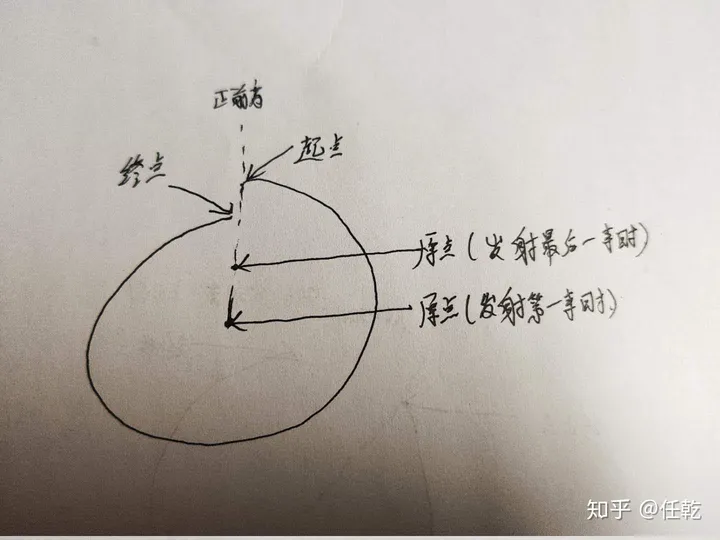 正前方
起点
终点
原点(发射最后一束时)
原点(发射第一束时)
知乎 @任乾